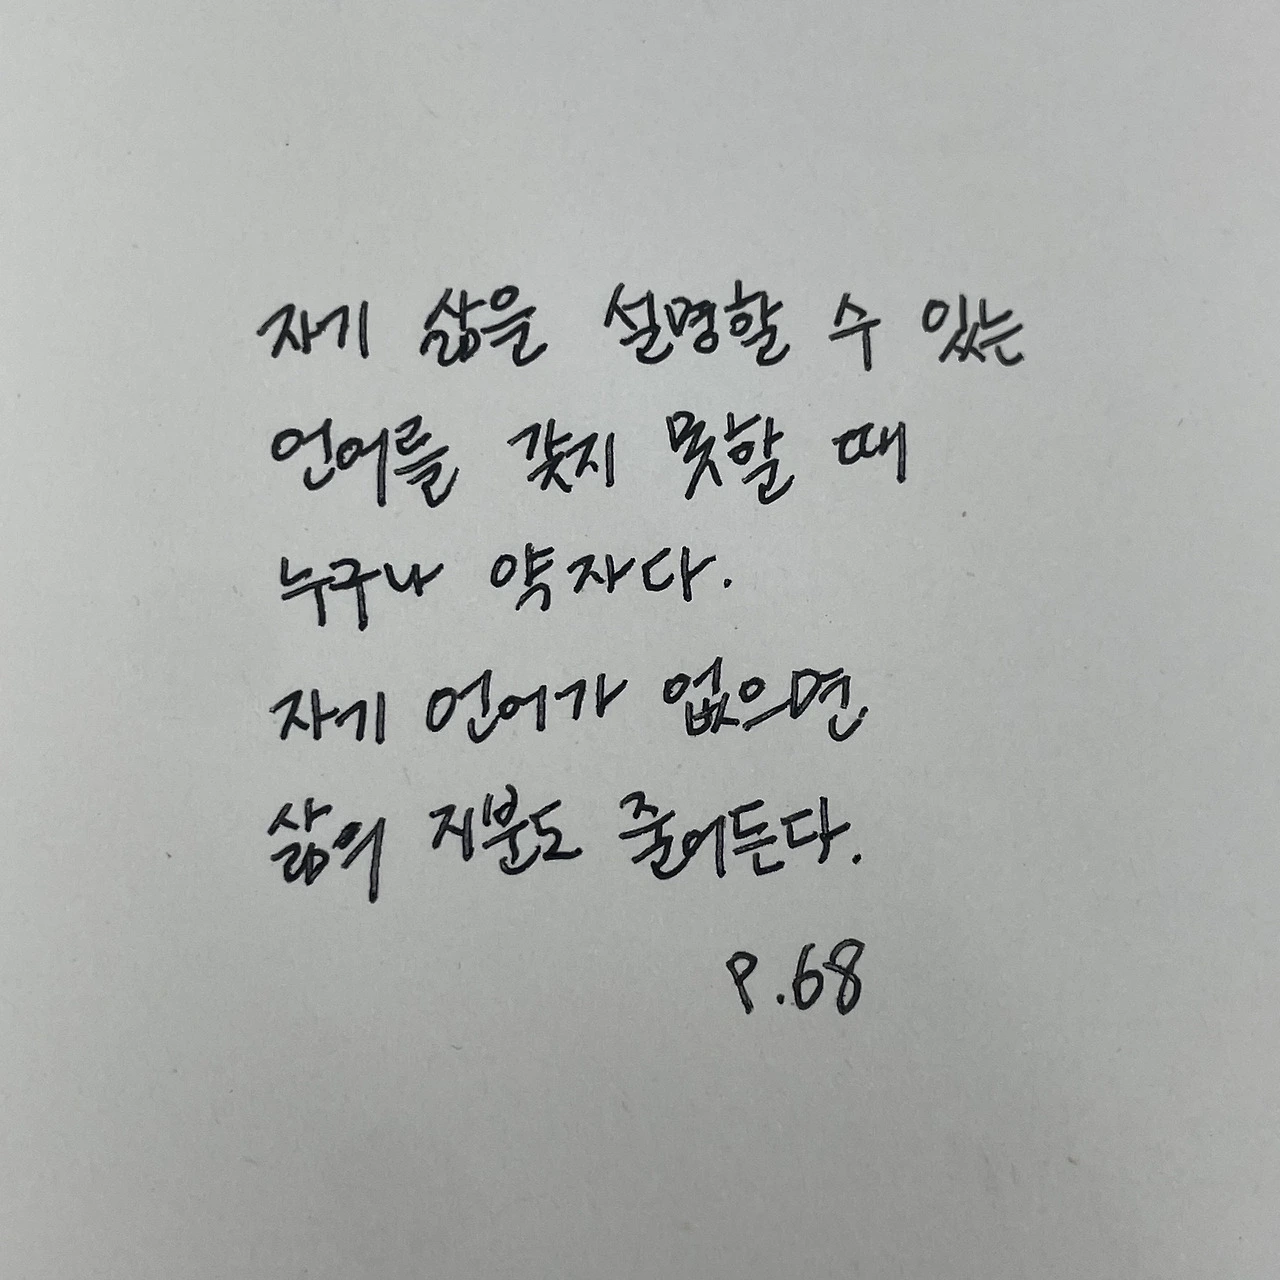 자기 삶을 설명할 수 있는
언어를 갖지 못할 때
누구나 약자다.
자기 언어가 없으면
삶의 지분도 줄어든다.
P.68